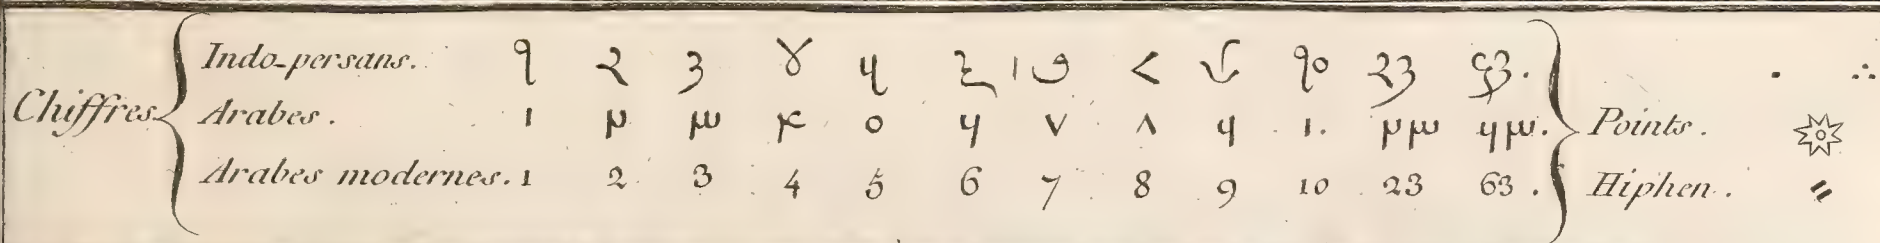 Chiffres
Indo-persans. १ २ ३ ४ ५ ६ ७ ८ ९ १० २३ ६३.
Arabes. ١ ٢ ٣ ۴ ٥ ٦ ٧ ٨ ٩ ١٠ ٢٣ ٦٣.
Arabes modernes. 1 2 3 4 5 6 7 8 9 10 23 63.
Points. . ∴
Hiphen.